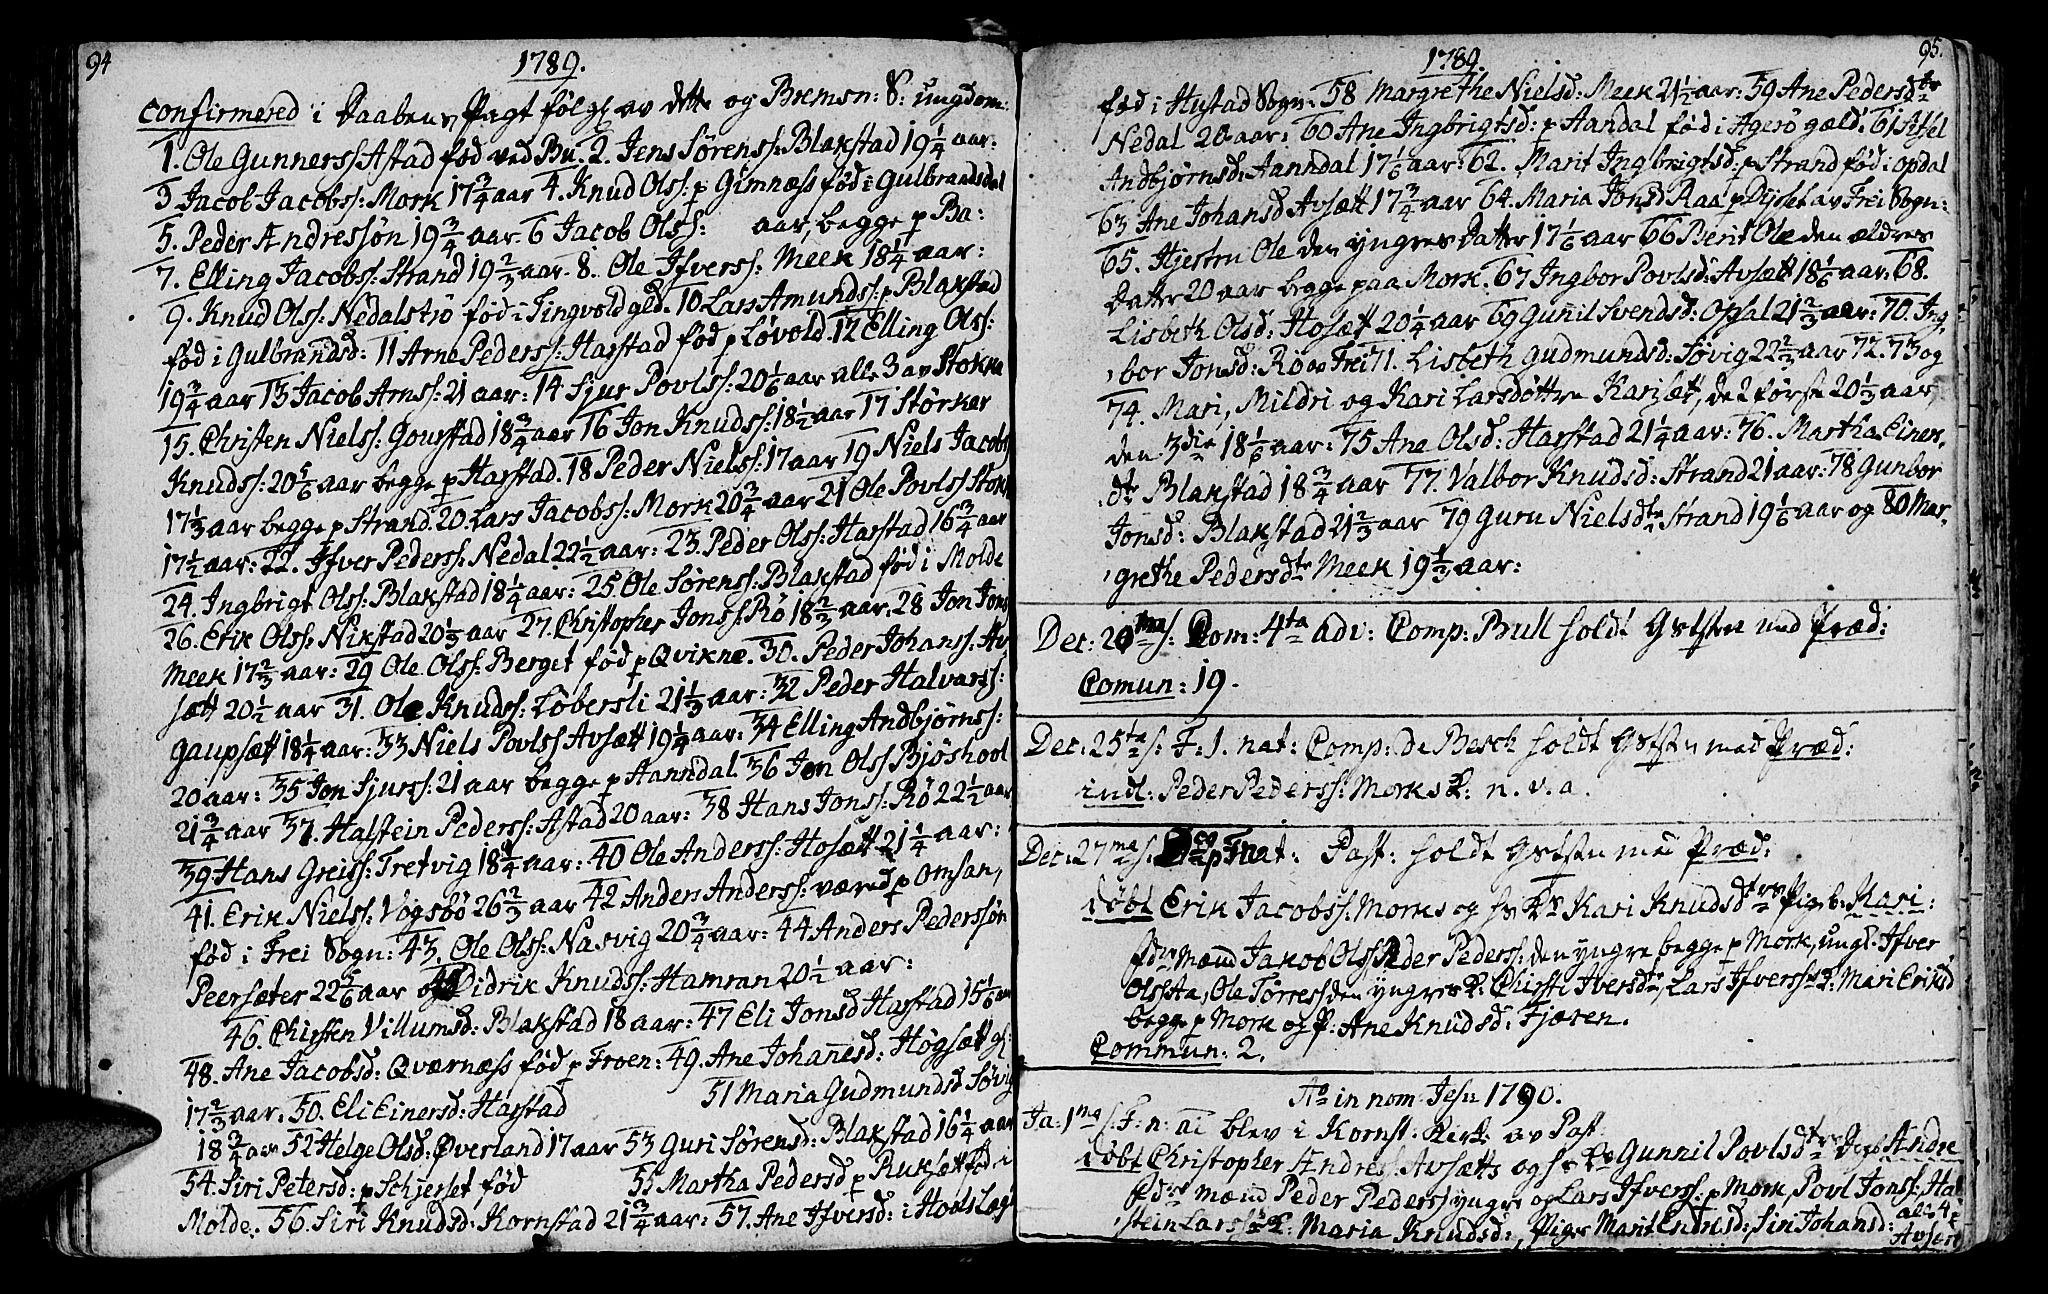 94
1789.
confirmered i Daabens Pagt følg av dette og Bremsn: S: ungdom:
1. Ole Gunnerss Astad fød ved Bu. 2. Jens Sørenss: Blakstad 19 1/4 aar:
3 Jacob Jacobss: Mork 17 3/4 aar 4. Knud Olss: p Gimnæss fød i Gulbrandsdal
5. Peder Andressøn 19 3/4 aar. 6 Jacob Olss: aar, begge p Ba:
7. Elling Jacobss: Strand 19 2/3 aar. 8. Ole Ifverss: Meek 18 1/4 aar:
9. Knud Olss: Nedalstrø fød i Tingvold gld. 10 Lars Amundss: p Blakstad
fød i Gulbrandsd: 11 Arne Pederss: Harstad fød p Løvold. 12 Elling Olss:
19 3/4 aar 13 Jacob Arnss: 21 aar: 14 Sjur Povlss: 20 1/6 aar alle 3 av Stokke
15. Christen Nielss: Gourstad 18 3/4 aar 16 Jon Knudss: 18 1/2 aar 17 Størker
Knudss: 20 5/6 aar begge p Harstad. 18 Peder Nielss: 17 aar 19 Niels Jacobs
17 1/3 aar begge p Strand. 20. Lars Jacobss: Mork 20 3/4 aar 21 Ole Povlss Stok
17 1/2 aar: 22. Ifver Pederss: Nedal 22 1/2 aar: 23. Peder Olss: Harstad 16 3/4 aar
24. Ingbrigt Olss: Blakstad 18 1/4 aar: 25. Ole Sørenss: Blakstad fød i Molde
26. Erik Olss: Nikstad 20 1/3 aar 27. Christopher Jonss: Rø 18 2/3 aar. 28 Jon Jons
Meek 17 2/3 aar: 29 Ole Olss: Berget fød p Qvikne. 30. Peder Johanss: Av
sætt 20 1/2 aar 31. Ole Knudss: Løbersli 21 1/3 aar: 32 Peder Halvarss:
Gaupsætt 18 1/4 aar: 33 Niels Povlss Avsætt 19 1/4 aar: 34 Elling Andbjørnss:
20 aar: 35 Jon Sjurss: 21 aar begge p Aanndal. 36 Jon Olss Bjøshool
21 3/4 aar 37. Halstein Pederss: Astad 20 aar: 38 Hans Jonss: Rø 22 1/2 aar
39 Hans Greiss: Tretvig 18 3/4 aar: 40 Ole Anderss: Hosætt 21 1/4 aar:
41. Erik Nielss: Vogsbø 26 2/3 aar 42 Anders Anderss: væred p Omsan,
fød i Frei Sogn: 43. Ole Olss: Nasvig 20 3/4 aar: 44 Anders Pederssøn
Peersæter 22 5/6 aar og Didrik Knudss: Hamran 20 1/2 aar:
46. Chirsten Villumsd: Blakstad 18 aar: 47 Eli Jonsd Harstad 15 1/6 aar
48. Ane Jacobsd: Qværnæss fød p Froen: 49. Ane Johañesd: Høgsætt gl:
17 2/3 aar: 50. Eli Einersd: Harstad 51 Maria Gudmundsd Søvig
18 3/4 aar 52 Helge Olsd: Øverland 17 aar 53 Guri Sørensd: Blakstad 16 1/4 aar
54. Siri Petersd: p Schjerset fød 55 Martha Pedersd p Ruksætt fød i
Molde. 56. Siri Knudsd: Kornstad 21 3/4 aar: 57. Ane Ifversd: i Hools Læg
1789.
95.
fød i Hustad Sogn. 58 Margrethe Nielsd: Meek 21 1/2 aar: 59 Ane Pedersdtr
Nedal 20 aar: 60 Ane Ingbrigtsd: p Aandal fød i Agerø gæld: 61
Andbjørnsd: Aanndal 17 1/6 aar: 62. Marit Ingbrigtsd: p Strand fød i Opdal
63 Ane Johansd Avsætt 17 3/4 aar 64. Maria Jonsd Raa p av Frei Sogn:
65. Hjestru Ole den yngres Datter 17 1/6 aar 66 Berit Ole den ældres
Datter 20 aar begge paa Mork. 67 Ingbor Povlsd: Avsætt 18 1/6 aar: 68.
Lisbeth Olsd: Hosætt 20 1/4 aar 69 Gunil Svendsd: Opsal 21 2/3 aar: 70. Ing,
,bor Jonsd: Rø p Frei 71. Lisbeth Gudmundsd: Søvig 22 2/3 aar 72. 73 og
74. Mari, Mildri og Kari Larsdøttre Karisætt, de 2 første 20 1/3 aar,
den 3die 18 1/6 aar: 75 Ane Olsd: Harstad 21 1/4 aar: 76. Martha Einers
dtr Blakstad 18 3/4 aar 77. Valbor Knudsd: Strand 21 aar: 78 Gunbor
Jonsd: Blakstad 21 2/3 aar 79 Guru Nielsdtr Strand 19 1/6 aar og 80 Mar,
,grethe Pedersdtr Meek 19 1/3 aar:
Dec: 20ma s: Dom: 4ta adv: Comp: Bull holdt Gststen med Præd:
Comun: 19.
Dec: 25ta s: F: 1. nat: Comp: de Besch holdt Gstsn med Præd:
intl: Peder Pederss: Morks K: n. v. a.
Dec: 27ma s: Dca p F nat: Past: holdt Gstsn med Præd:
døbt Erik Jacobss: Morks og hs K Kari Knudsdtrs Pigeb: Mari:
fdre Mænd Jakob Olss Peder Pederss: den yngre begge p Mork, ungk: Ifver
Olss Sta, Ole Tørress den yngres K: Chirsti Iversdtr, Lars Ifverss K: Mari Eriksd
begge p Mork og P: Ane Knudsd: Fjæren.
Commun: 2.
Ao in nom Jesu 1790.
Ja: 1ma s: F: n: ai blev i Kornst: Kirke av Past:
døbt Christopher Andress: Avsætts og hs K Gunnil Povlsdtrs Andre
fdre Mænd Peder Pederss yngre og Lars Ifverss: p Mork, Povl Jonss: Hal
,stein Larss K: Maria Knudsd:, Pige Marit Endresd: Siri Johansd: alle 4
Avsætt